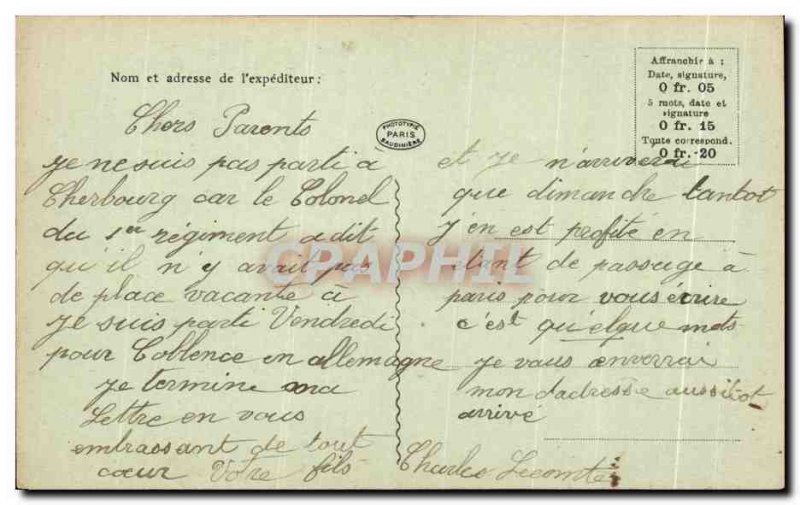 Nom et adresse de l'expéditeur :
Affranchir à :
Date, signature,
0 fr. 05
5 mots, date et
signature
0 fr. 15
Toute correspond.
0 fr. 20
PHOTOTYPIE
PARIS
BAUDINIÈRE
Chers Parents
je ne suis pas parti a
Cherbourg car le Colonel
du 1er régiment a dit
qu'il n'y avait pas
de place vacante à
je suis parti Vendredi
pour Coblence en allemagne
je termine ma
Lettre en vous
embrassant de tout
cœur Votre fils
et je n'arriverai
que dimanche tantot
J'en est profité en
étant de passage à
paris pour vous écrire
c'est quelque mots
je vous enverrai
mon dadresse aussitot
arrivé
Charles Lecomte
CPAPHIL